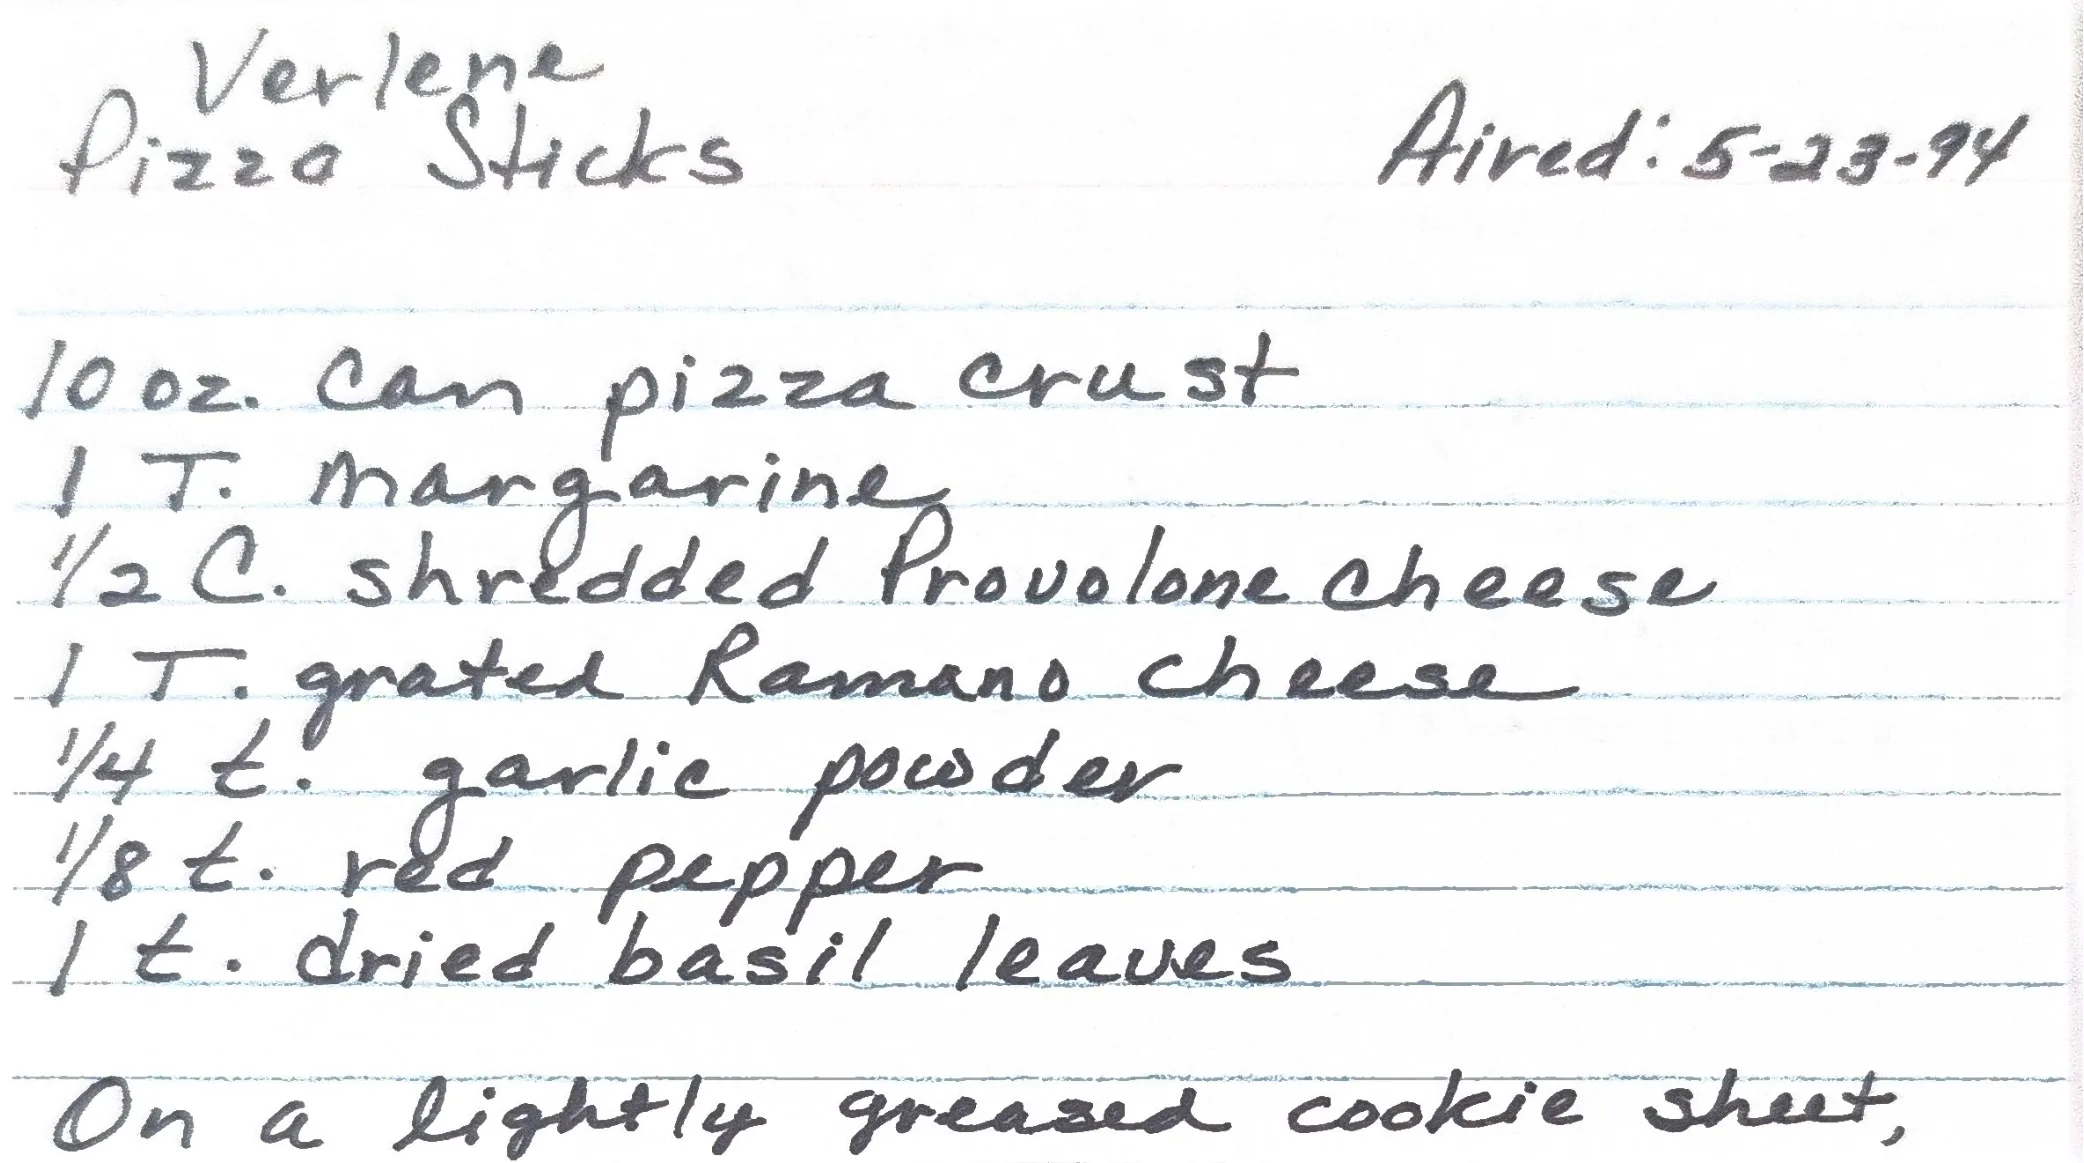 Verlene
Pizza Sticks Aired: 5-23-94
10 oz. Can pizza crust
1 T. margarine
1/2 C. shredded Provolone cheese
1 T. grated Ramano cheese
1/4 t. garlic powder
1/8 t. red pepper
1 t. dried basil leaves
On a lightly greased cookie sheet,